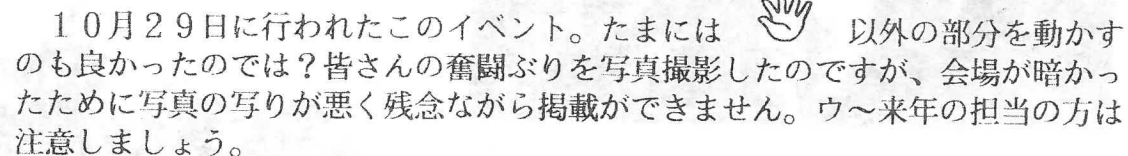 １０月２９日に行われたこのイベント。たまには　　以外の部分を動かす
のも良かったのでは？皆さんの奮闘ぶりを写真撮影したのですが、会場が暗かっ
たために写真の写りが悪く残念ながら掲載ができません。ウ～来年の担当の方は
注意しましょう。